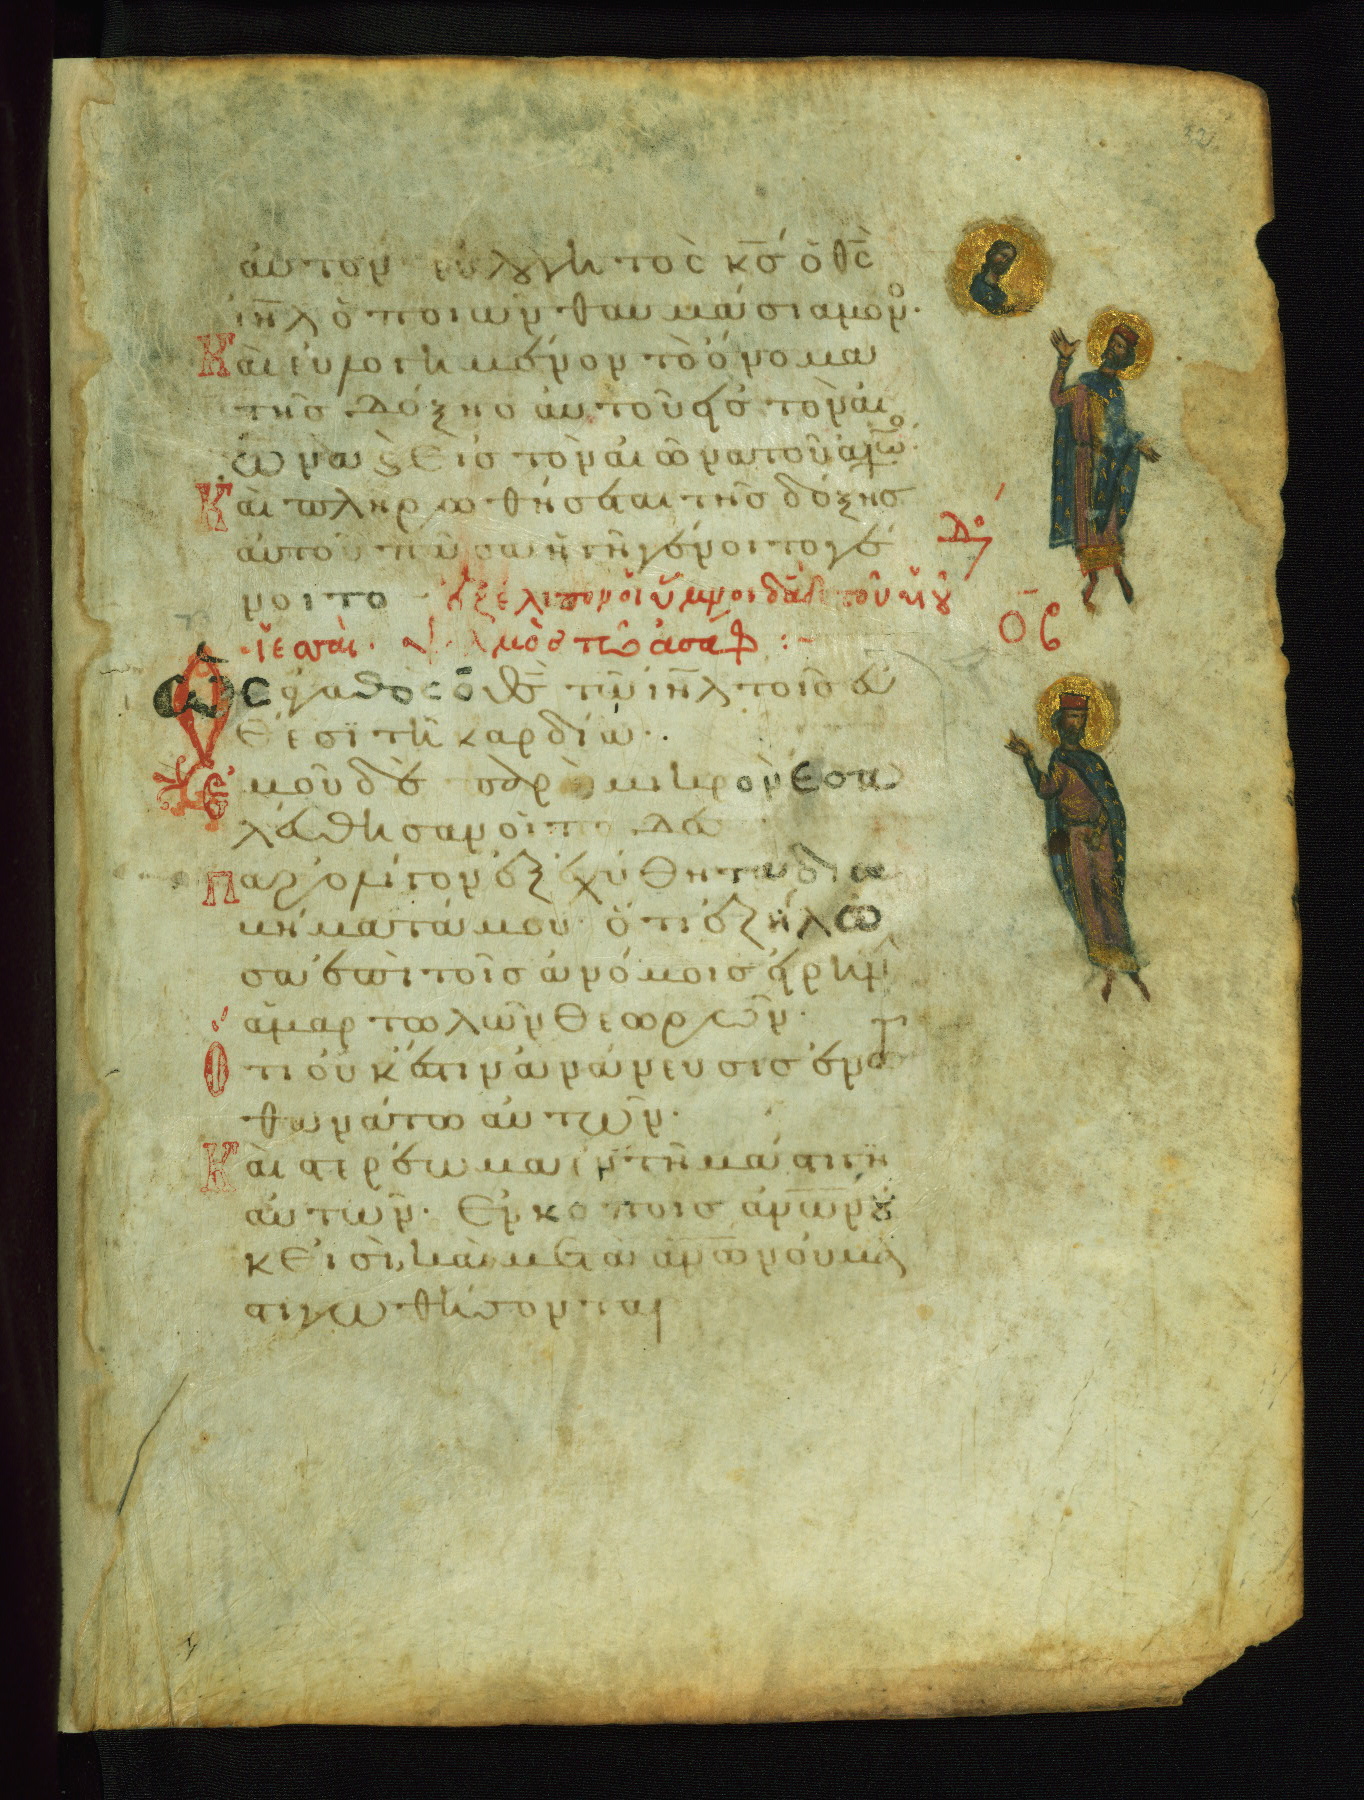 αυτον· ευλογητὸς κ̅ς̅ ὁ θ̅ς̅
ι̅η̅λ̅ ὁ ποιῶν θαυμάσια μόνος·
Καὶ ἐυλογητὸν τὸ ὄνομα
τῆς δόξης αὐτοῦ εἰς τὸν αἰ
ῶνα ϗ εἰς τὸν αἰῶνα τοῦ αἰῶνος·
Καὶ πληρωθήσεται τῆς δόξης
αὐτοῦ πᾶσα ἡ γῆ γένοιτο γέ
νοιτο
ἐξέλιπον οἱ ὕμνοι δαδ τοῦ υἱοῦ
ἰεσσαί· ψαλμὸς τῶ ἀσάφ :-
οβ
Ὡς ἀγαθὸς ὁ θ̅ς̅ τῶ ι̅η̅λ̅ τοῖς εὐ
θέσι τῆ καρδία·
Ἐμοῦ δὲ παρὰ μικρὸν ἐσα
λεύθησαν οἱ πόδες
παρ' ὀλίγον ἐξεχύθη τὰ δια
βήματά μου· ὅτι ἐζήλω
σα ἐπὶ τοῖς ἀνόμοις εἰρήνην
ἁμαρτωλῶν θεωρῶν·
Ὅτι οὐκ ἔστιν ἀνάνευσις ἐν τῶ
θανάτω αὐτῶν·
Καὶ στερέωμα ἐν τῆ μάστιγι
αὐτῶν· Ἐν κόποις ἀν̅ω̅ν οὐ
κ εἰσὶ, καὶ μετὰ ἀν̅ω̅ν οὐ μα
στιγωθήσονται